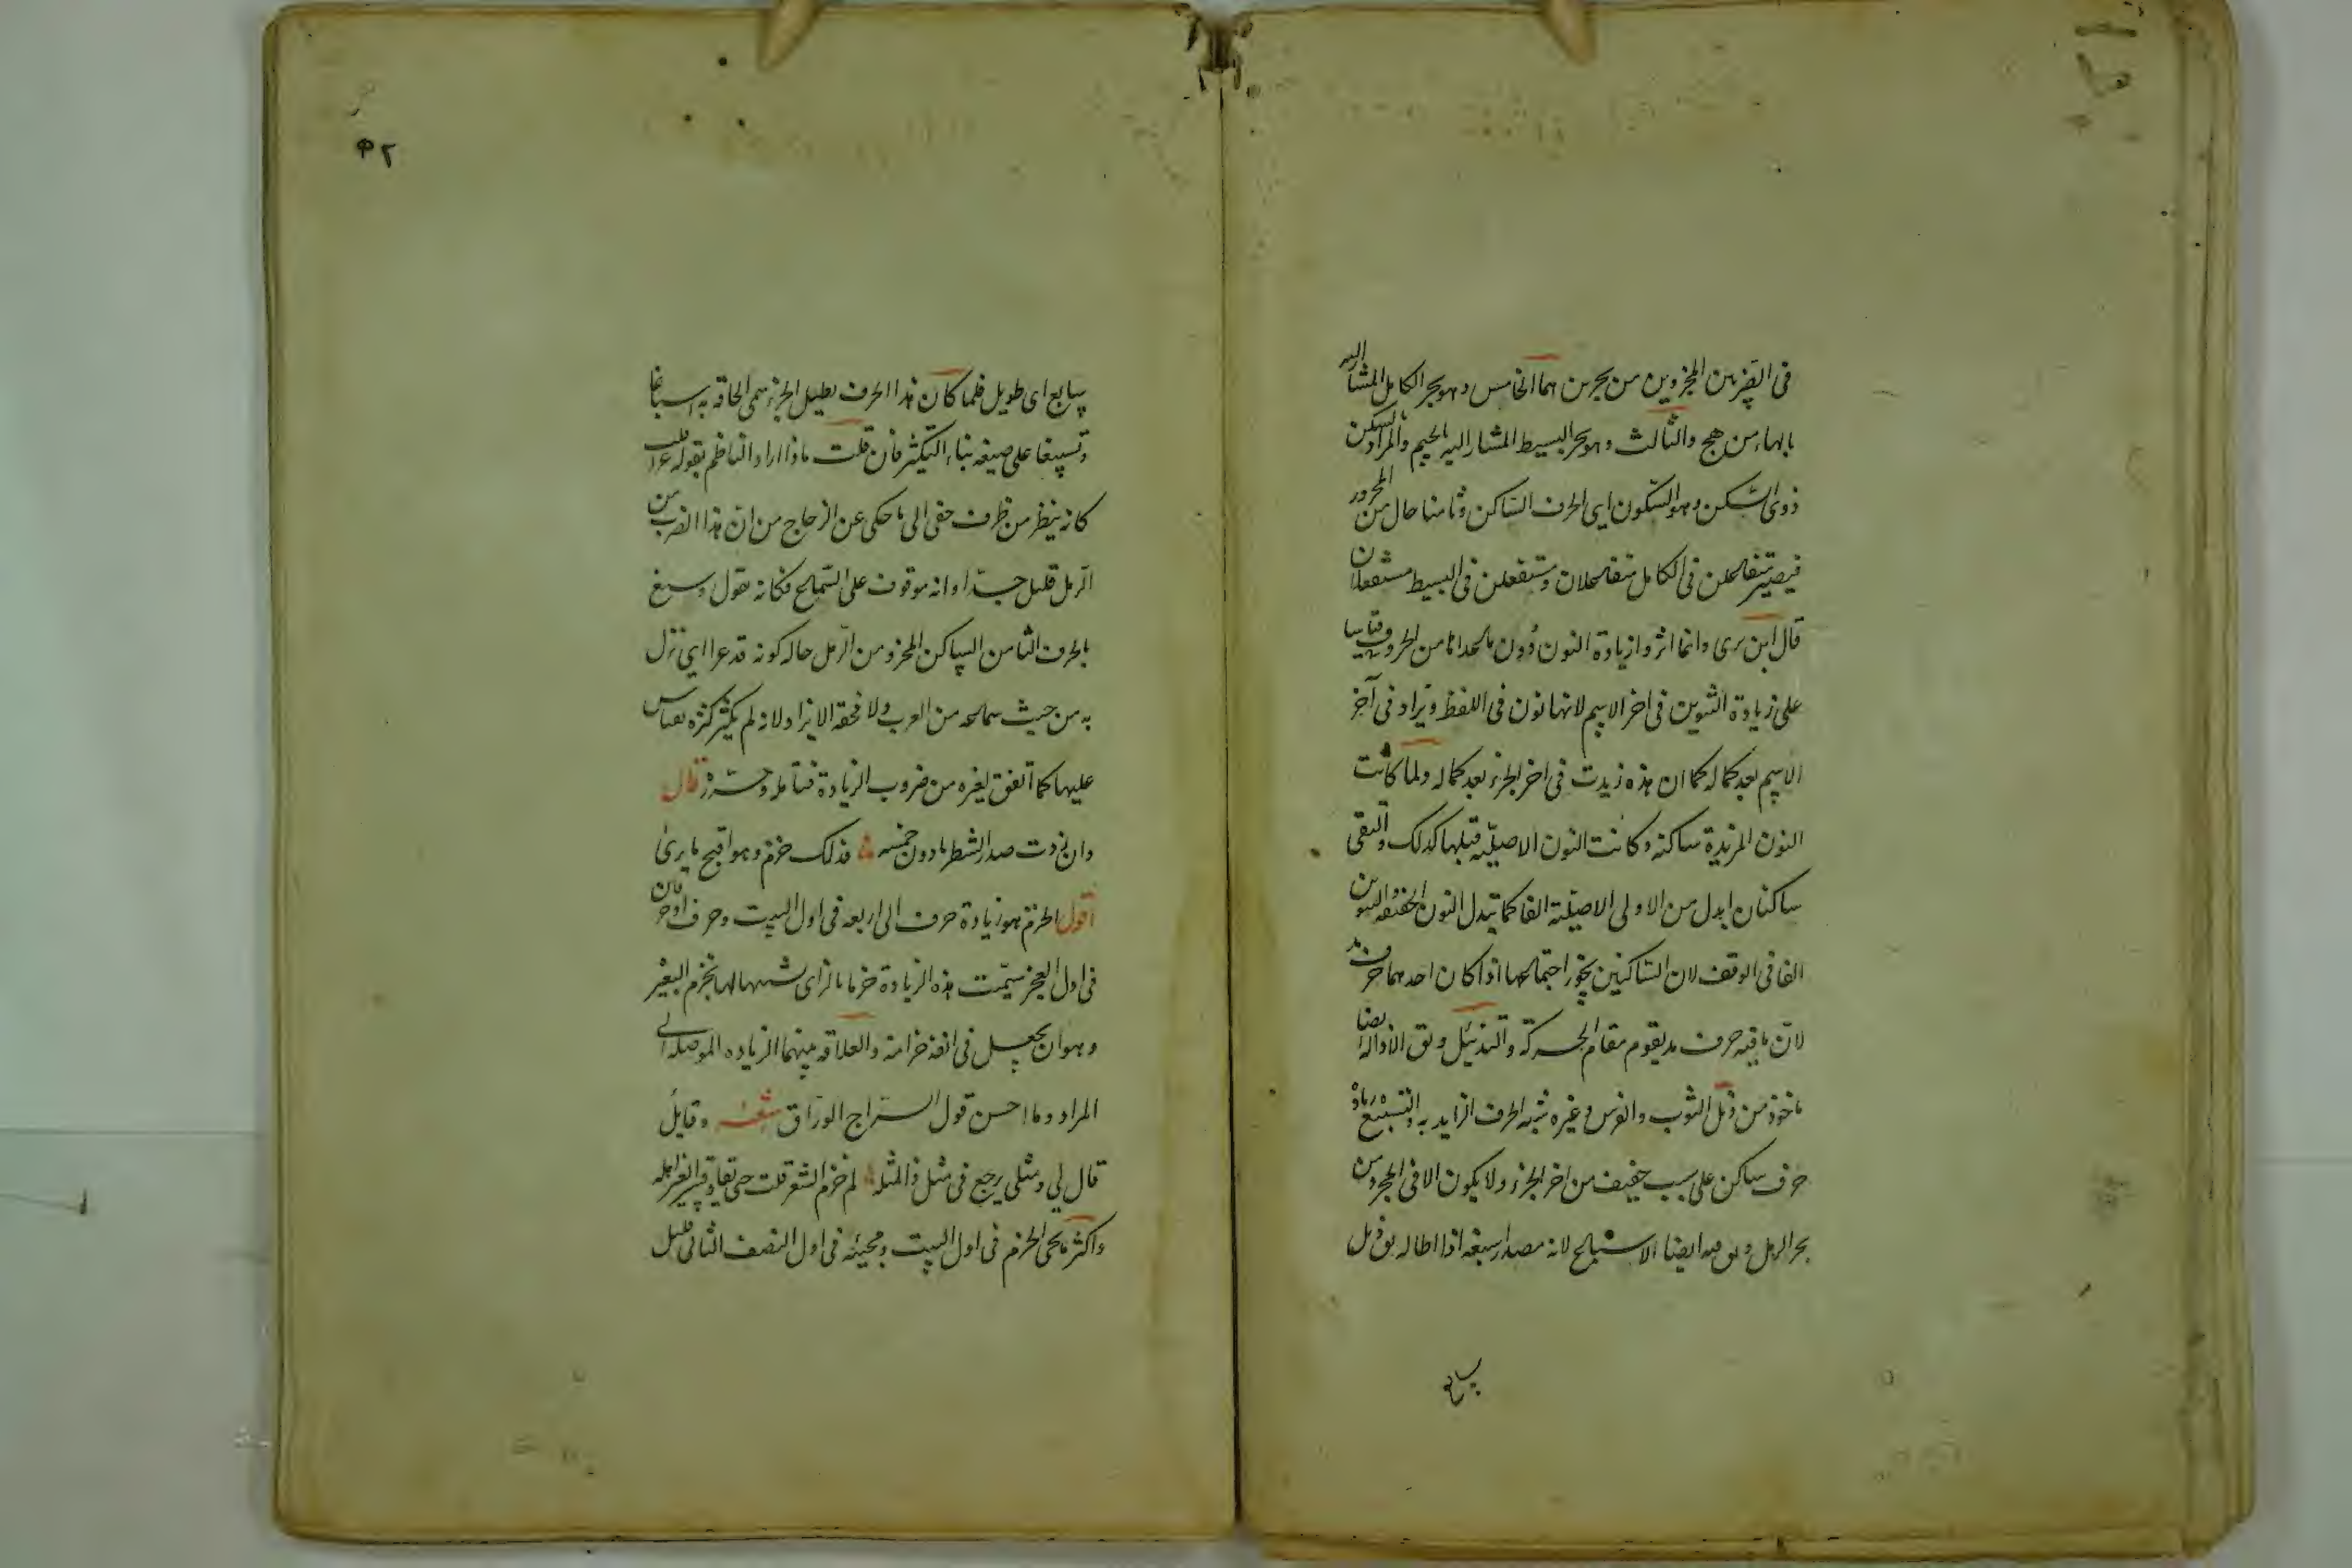 في الضربين المجزوين من بحرين هما الخامس وهو بحر الكامل المشار اليه
بالهاء من هج والثالث وهو بحر البسيط المشار اليه بالجيم والمراد بالسكن
ذوى السكن وهو السكون اى الحرف الساكن وثامنا حال من المجرور
فيصير متفاعلن في الكامل متفاعلان ومستفعلن في البسيط مستفعلان
قال ابن برى وانما اثروا زيادة النون دون ما عداها من الحروف قياسا
على زيادة التنوين في اخر الاسم لانها نون في اللفظ ويزاد في آخر
الاسم بعد كماله كما ان هذه زيدت في اخر الجزء بعد كماله ولما كانت
النون المزيدة ساكنة وكانت النون الاصلية قبلها كذلك والتقى
ساكنان ابدل من الاولى الاصلية الفا كما تبدل النون الخفيفة والتنوين
الفا في الوقف لان الساكنين يجوز اجتماعهما اذا كان احدهما حرف مد
لان ما فيه حرف مد يقوم مقام الحركة والتذييل ويق الاذالة ايضا
ماخوذ من ذيل الثوب والفرس وغيره شبه الحرف الزايد به والتسبيغ زيادة
حرف ساكن على سبب خفيف من اخر الجزء ولا يكون الا في المجزو من
بحر الرمل ويق فيه ايضا الاسباغ لانه مصدر اسبغه اذا اطاله يق ذيل
سابغ
٤٢
سابغ اى طويل فلما كان هذا الحرف يطيل الجزء سمى الحاقه به اسباغا
وتسبيغا على صيغه بناء التكثير فان قلت ماذا اراد الناظم بقوله عرا قلت
كانه ينظر من طرف خفى الى ما حكى عن الزجاج من ان هذا الضرب من
الرمل قليل جدا وانه موقوف على السماع فكانه يقول وسبغ
بالحرف الثامن الساكن المجزو من الرمل حالة كونه قد عرا اى نزل
به من حيث سماعه من العرب ولا تحقه الا نزا ولانه لم يكثر كثرة يقاس
عليها كما اتفق لغيره من ضروب الزيادة فتامله وحرره قال
وان زدت صدر الشطر ما دون خمسه فذلك خزم وهو اقبح ما يرى
اقول الخزم هو زيادة حرف الى اربعه في اول البيت وحرف او حرفان
في اول العجز سميت هذه الزيادة خزما بالزاى شبها لها بخزم البعير
وهو ان يجعل في انفه خزامه والعلاقة بينهما الزياده الموصلة الى
المراد وما احسن قول السراج الوراق شعر وقايل
قال لي ومثلى يرجع في مثل ذا لمثله لم خزم الشعر قلت حتى يقاد قسرا لغير اهله
واكثر ما يجى الخزم في اول البيت ومجيئه في اول النصف الثانى قليل